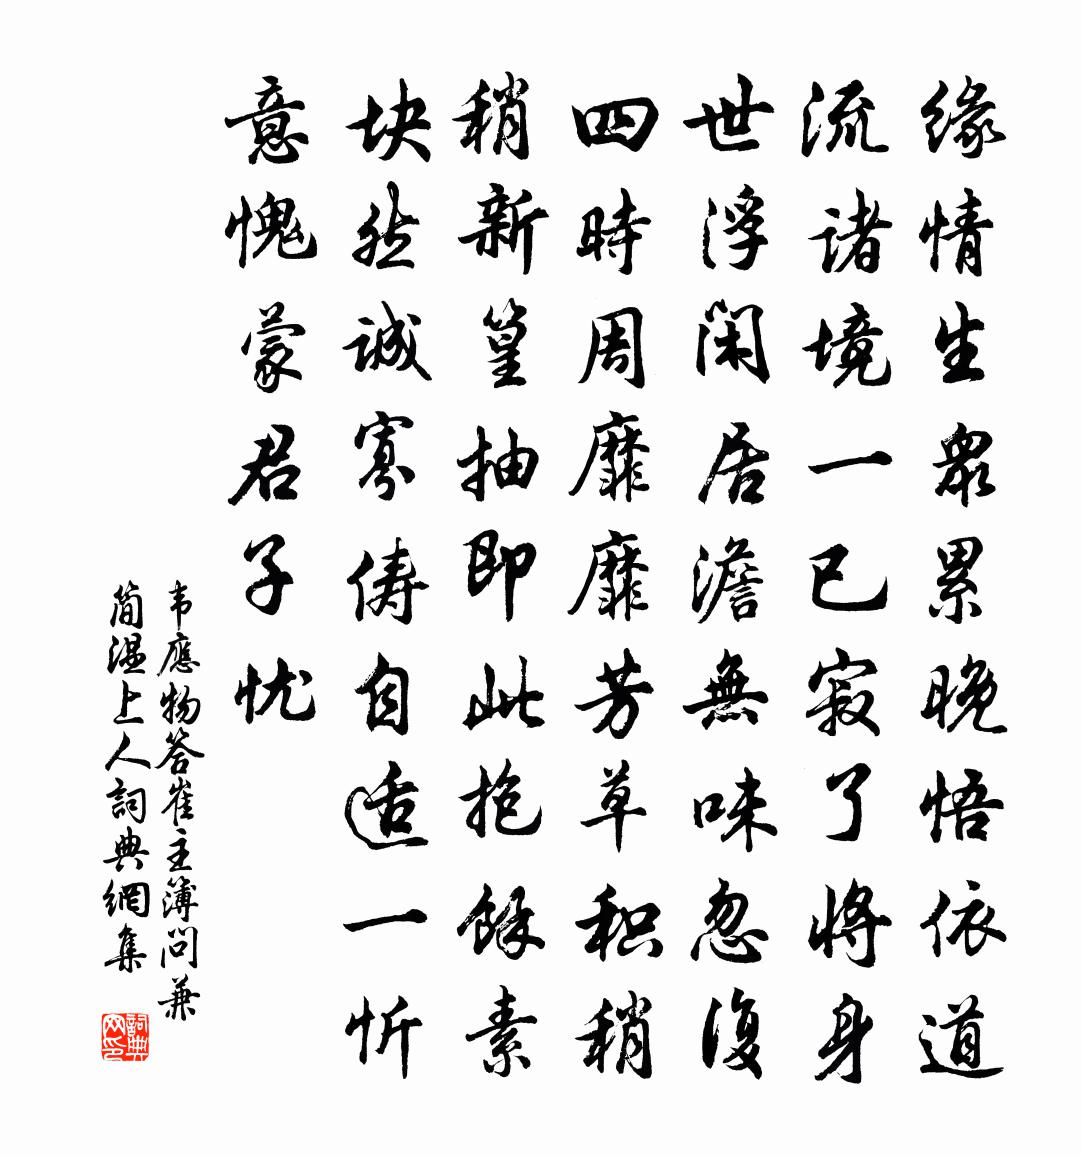 缘情生眾累晚悟依道
流诸境一已寂了将身
世浮闲居澹無味忽復
四時周靡靡芳草积稍
稍新篁抽即此抱餘素
块然诚寡俦自适一忻
意愧蒙君子忧
韦應物答崔主簿问兼
简温上人詞典網集
詞典网印